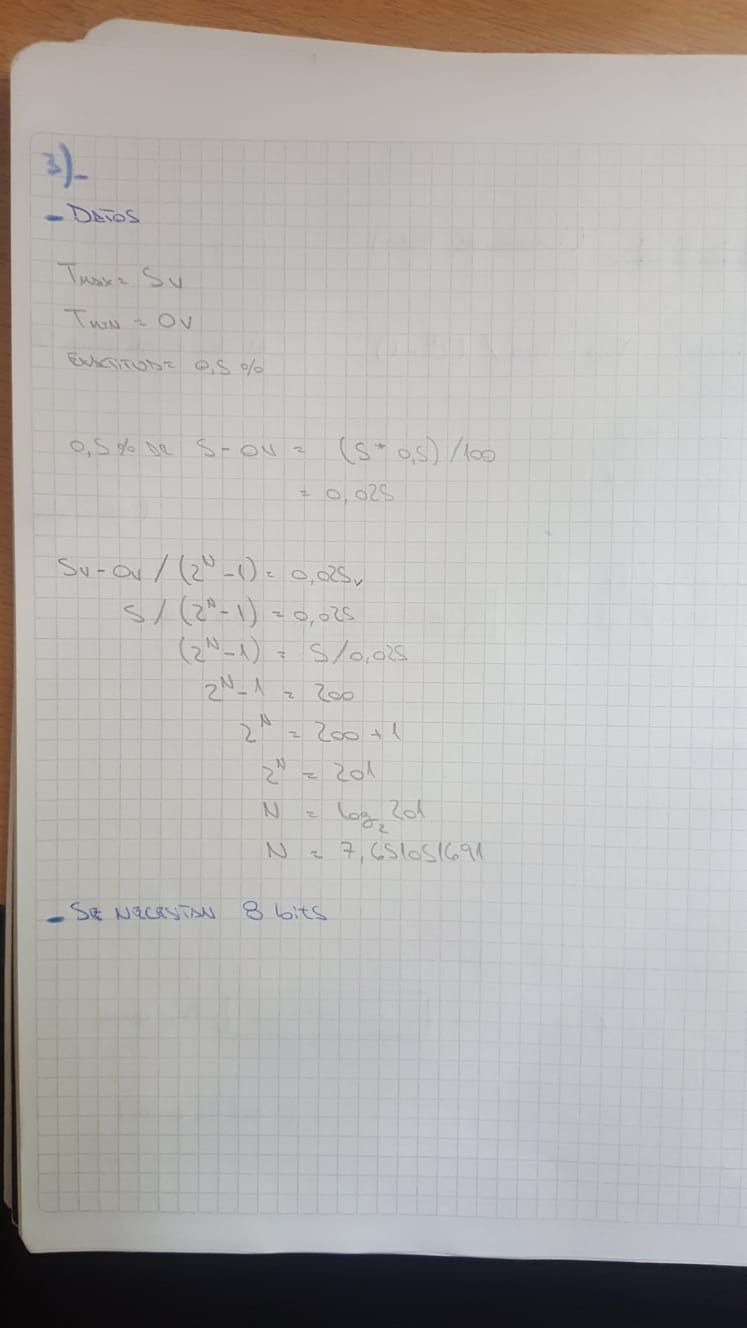 3)-
- DATOS
Tmax = 5v
TMIN = 0v
EXACTITUD = 0,5%
0,5% DE 5-0V = (5*0,5)/100
= 0,025
5v-0v/(2^N-1) = 0,025v
5/(2^N-1) = 0,025
(2^N-1) = 5/0,025
2^N-1 = 200
2^N = 200+1
2^N = 201
N = log₂ 201
N = 7,651051691
- SE NECESITAN 8 bits